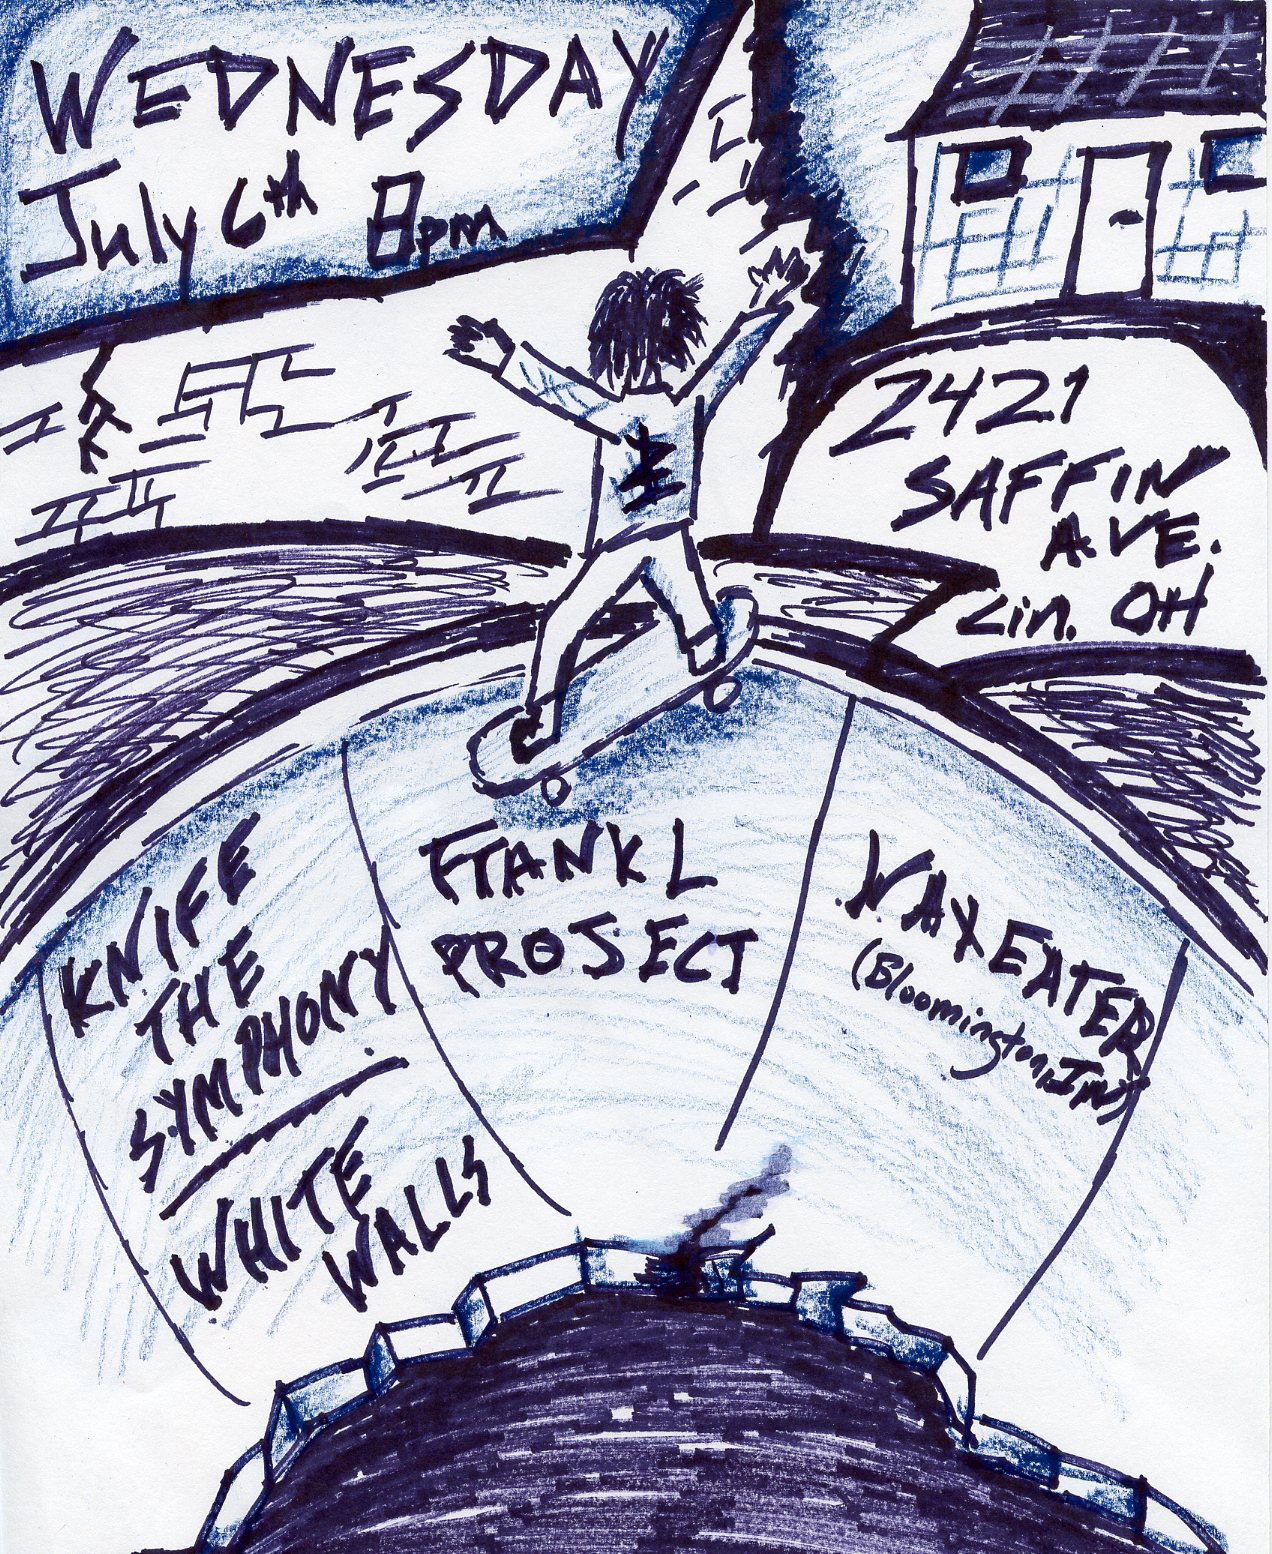 WEDNESDAY
July 6th 8pm
2421
SAFFIN
AVE.
Cin. OH
KNIFE
THE
SYMPHONY
WHITE
WALLS
FTANKL
PROJECT
WAXEATER
(Bloomington, In)